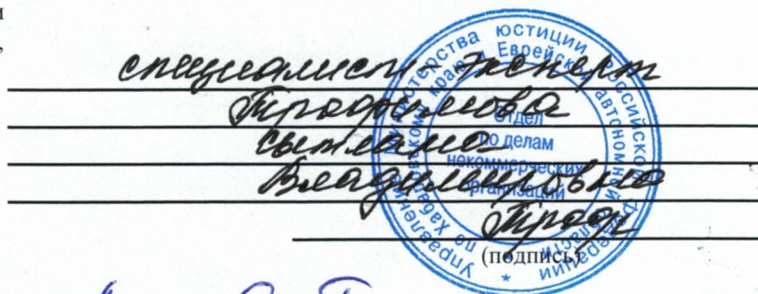 и
,
специалист-эксперт
Трофимова
Светлана
Владимировна
Троф
(подпись)
Управление Министерства юстиции Российской Федерации
по Хабаровскому краю и Еврейской автономной области
отдел
по делам
некоммерческих
организаций